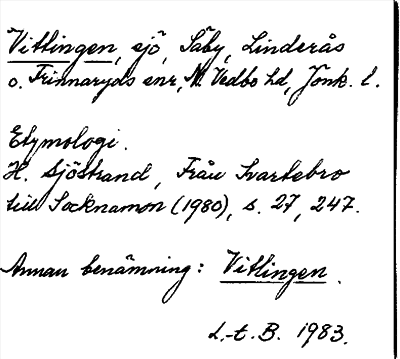 Vitlingen, sjö, Säby, Linderås
o. Frinnaryds snr, N. Vedbo hd, Jönk. l.
Etymologi.
H. Sjöstrand, Från Svartebro
till Socknamon (1980), s. 27, 247.
Annan benämning: Vitlingen.
L.-t. B. 1983.